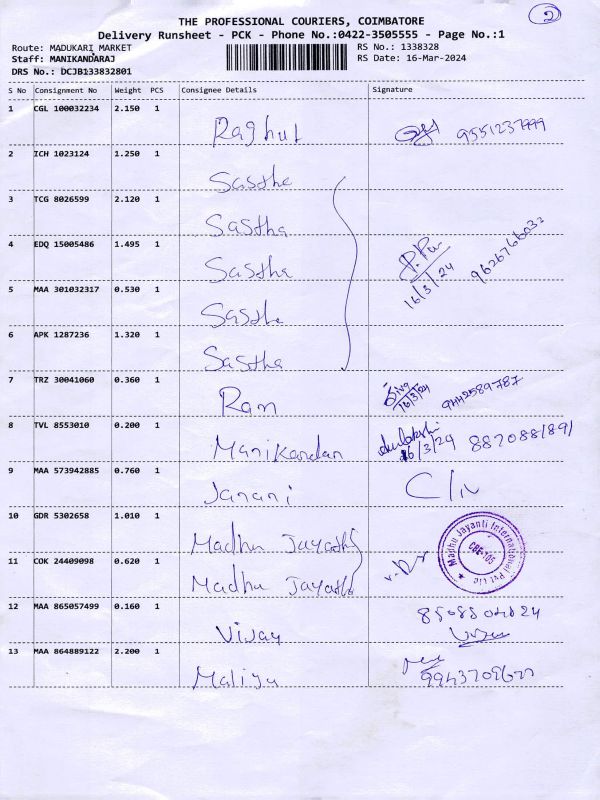 2
THE PROFESSIONAL COURIERS, COIMBATORE
Delivery Runsheet - PCK - Phone No.:0422-3505555 - Page No.:1
Route: MADUKARI MARKET
RS No.: 1338328
Staff: MANIKANDARAJ
RS Date: 16-Mar-2024
DRS No.: DCJB133832801
S No Consignment No Weight PCS Consignee Details Signature
1 CGL 100032234 2.150 1 Raghul
2 ICH 1023124 1.250 1 Sasthe
3 TCG 8026599 2.120 1 Sastha
4 EDQ 15005486 1.495 1 Sastha 16/3/24 9626766032
5 MAA 301032317 0.530 1 Sasthe
6 APK 1287236 1.320 1 Sastha
7 TRZ 30041060 0.360 1 Ram Siva 16/3/24 9442589787
8 TVL 8553010 0.200 1 Manikandan 16/3/24 8870881891
9 MAA 573942885 0.760 1 Janani
10 GDR 5302658 1.010 1 Madhu Jayanthi
11 COK 24409098 0.620 1 Madhu Jayanthi
Madhu Jayanti International Pvt Ltd
CBE-105
12 MAA 865057499 0.160 1 Vijay
13 MAA 864889122 2.200 1 Maliga